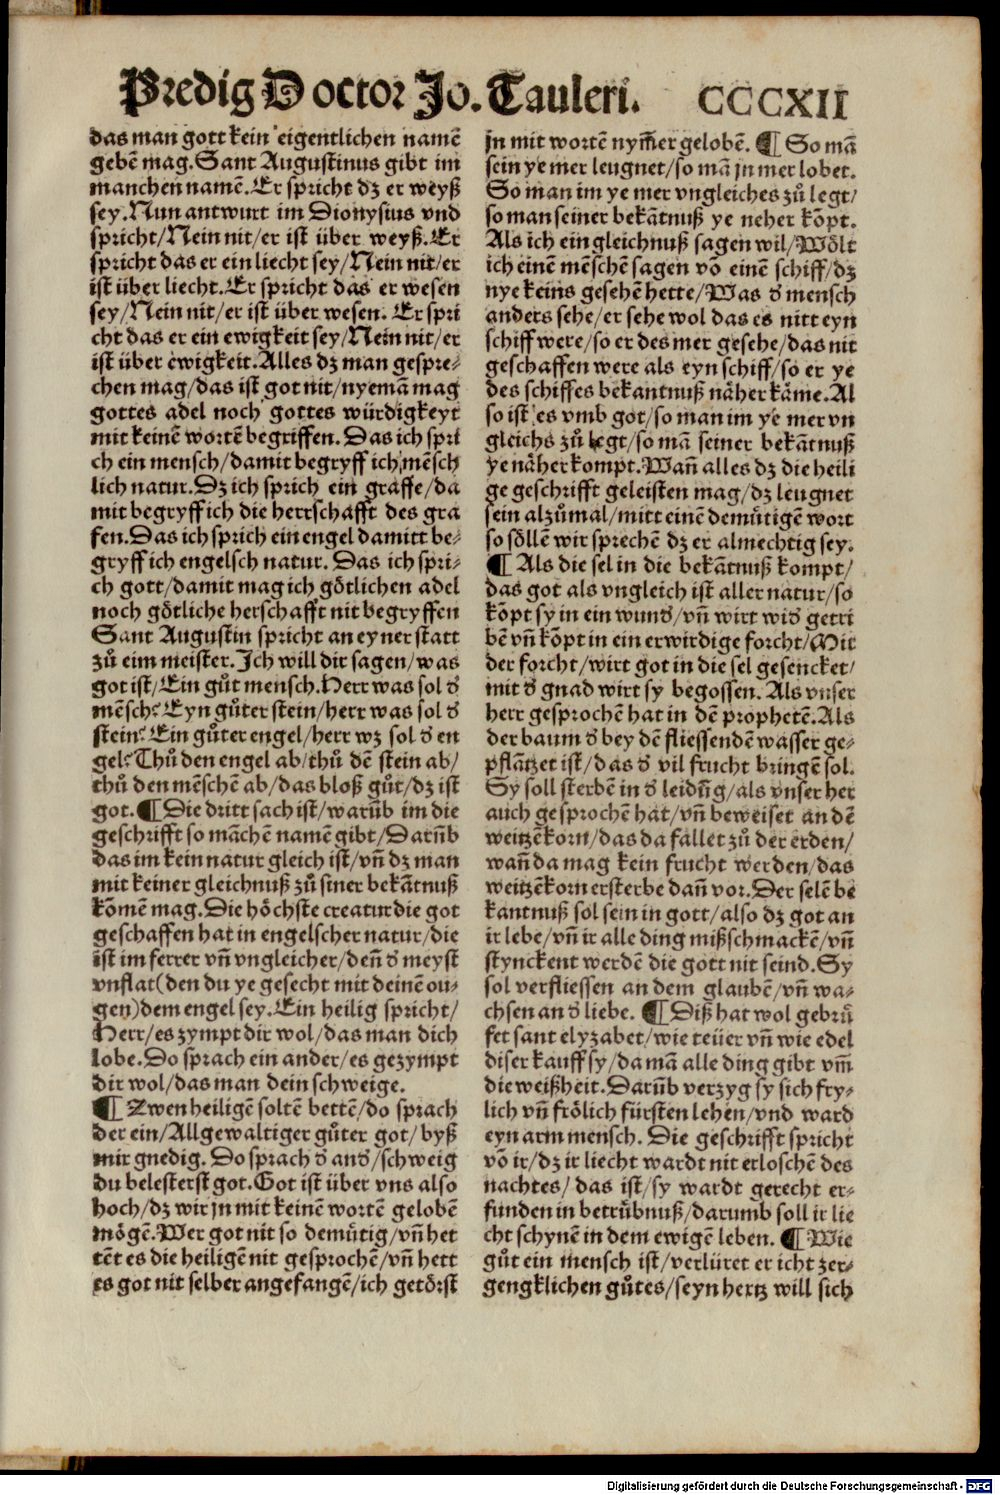 Predig Doctor Jo. Tauleri. CCCXII
das man gott kein eigentlichen namē
gebē mag. Sant Augustinus gibt im
manchen namē. Er spricht dz er weyß
sey. Nun antwurt im Dionysius vnd
spricht/Nein nit/er ist über weyß. Er
spricht das er ein liecht sey/Nein nit/er
ist über liecht. Er spricht das er wesen
sey/Nein nit/er ist über wesen. Er spri
cht das er ein ewigkeit sey/Nein nit/er
ist über ewigkeit. Alles dz man gespre⸗
chen mag/das ist got nit/nyemā mag
gottes adel noch gottes würdigkeyt
mit keinē wortē begriffen. Das ich spri
ch ein mensch/damit begryff ich mēsch
lich natur. Dz ich sprich ein graffe/da
mit begryff ich die herrschafft des gra
fen. Das ich sprich ein engel damitt be⸗
gryff ich engelsch natur. Das ich spri⸗
ch gott/damit mag ich götlichen adel
noch götliche herschafft nit begryffen
Sant Augustin spricht an eyner statt
zů eim meister. Ich will dir sagen/was
got ist/Ein gůt mensch. Herr was sol d̕
mēsch? Eyn gůter stein/herr was sol d̕
stein? Ein gůter engel/herr wz sol d̕ en
gel? Thů den engel ab/thů dē stein ab/
thů den mēschē ab/das bloß gůt/dz ist
got. ¶ Die dritt sach ist/warūb im die
geschrifft so māchē namē gibt/Darūb
das im kein natur gleich ist/vn̄ dz man
mit keiner gleichnuß zů siner bekātnuß
kōmē mag. Die höchste creatur die got
geschaffen hat in engelscher natur/die
ist im ferrer vn̄ vngleicher/den̄ d̕ meyst
vnflat(den du ye gesecht mit deinē ou⸗
gen)dem engel sey. Ein heilig spricht/
Herr/es zympt dir wol/das man dich
lobe. Do sprach ein ander/es gezympt
dir wol/das man dein schweige.
¶ Zwen heiligē soltē bettē/do sprach
der ein/Allgewaltiger gůter got/byß
mir gnedig. Do sprach d̕ and̕/schweig
du belesterst got. Got ist über vns also
hoch/dz wir jn mit keinē wortē gelobē
mögē. Wer got nit so demütig/vn̄ het
tēt es die heiligē nit gesprochē/vn̄ hett
es got nit selber angefangē/ich getörst
jn mit wortē nym̄er gelobē. ¶ So mā
sein ye mer leugnet/so mā jn mer lobet.
So man im ye mer vngleiches zů legt/
so man seiner bekātnuß ye neher kōpt.
Als ich ein gleichnuß sagen wil/Wölt
ich einē mēschē sagen vō einē schiff/dz
nye keins gesehē hette/Was d̕ mensch
anders sehe/er sehe wol das es nitt eyn
schiff were/so er des mer gesehe/das nit
geschaffen were als eyn schiff/so er ye
des schiffes bekantnuß näher käme. Al
so ist es vmb got/so man im ye mer vn
gleichs zů legt/so mā seiner bekātnuß
ye näher kompt. Wan̄ alles dz die heili
ge geschrifft geleisten mag/dz leugnet
sein alzůmal/mitt einē demütigē wort
so söllē wir sprechē dz er almechtig sey.
¶ Als die sel in die bekātnuß kompt/
das got als vngleich ist aller natur/so
kōpt sy in ein wund̕/vn̄ wirt wid̕ getri
bē vn̄ kōpt in ein erwirdige forcht/Mit
der forcht/wirt got in die sel gesencket/
mit d̕ gnad wirt sy begossen. Als vnser
herr gesprochē hat in dē prophetē. Als
der baum d̕ bey dē fliessendē wasser ge⸗
pflātzet ist/das d̕ vil frucht bringē sol.
Sy soll sterbē in d̕ leidūg/als vnser her
auch gesprochē hat/vn̄ beweiset an dē
weitzēkorn/das da fallet zů der erden/
wan̄ da mag kein frucht werden/das
weitzēkorn ersterbe dan̄ vor. Der selē be
kantnuß sol sein in gott/also dz got an
ir lebe/vn̄ ir alle ding mißschmackē/vn̄
stynckent werdē die gott nit seind. Sy
sol verfliessen an dem glaubē/vn̄ wa⸗
chsen an d̕ liebe. ¶ Diß hat wol gebrů
fet sant elyzabet/wie teüer vn̄ wie edel
diser kauff sy/da mā alle ding gibt vm̄
die weißheit. Darūb verzyg sy sich fry⸗
lich vn̄ frölich fürsten lehen/vnd ward
eyn arm mensch. Die geschrifft spricht
vō ir/dz ir liecht wardt nit erloschē des
nachtes/das ist/sy wardt gerecht er⸗
funden in betrübnuß/darumb soll ir lie
cht schynē in dem ewigē leben. ¶ Wie
gůt ein mensch ist/verlüret er icht zer⸗
gengklichen gůtes/seyn hertz will sich
Digitalisierung gefördert durch die Deutsche Forschungsgemeinschaft - DFG